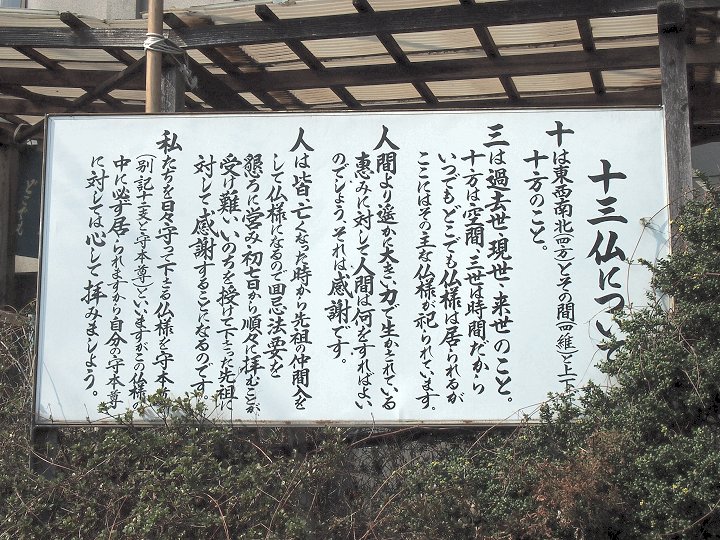 十三仏について
十は東西南北(四方)とその間(四維)と上下
十方のこと。
三は過去世・現世・来世のこと。
十方は空間、三世は時間だから
いつでも、どこでも仏様は居られるが
ここにはその主な仏様が祀られています。
人間より遥かに大きい力で生かされている
恵みに対して人間は何をすればよい
のでしょう、それは感謝です。
人は皆亡くなった時から先祖の仲間入を
して仏様になるので回忌法要を
懇ろに営み初七日から順々に拝むことが
受け難いいのちを授けて下さった先祖に
対して感謝することになるのです
私たちを日々守って下さる仏様を守本
(別記十二支と守本尊)といいますがこの仏様
中に必ず居られますから自分の守本尊
に対しては心して拝みましょう。